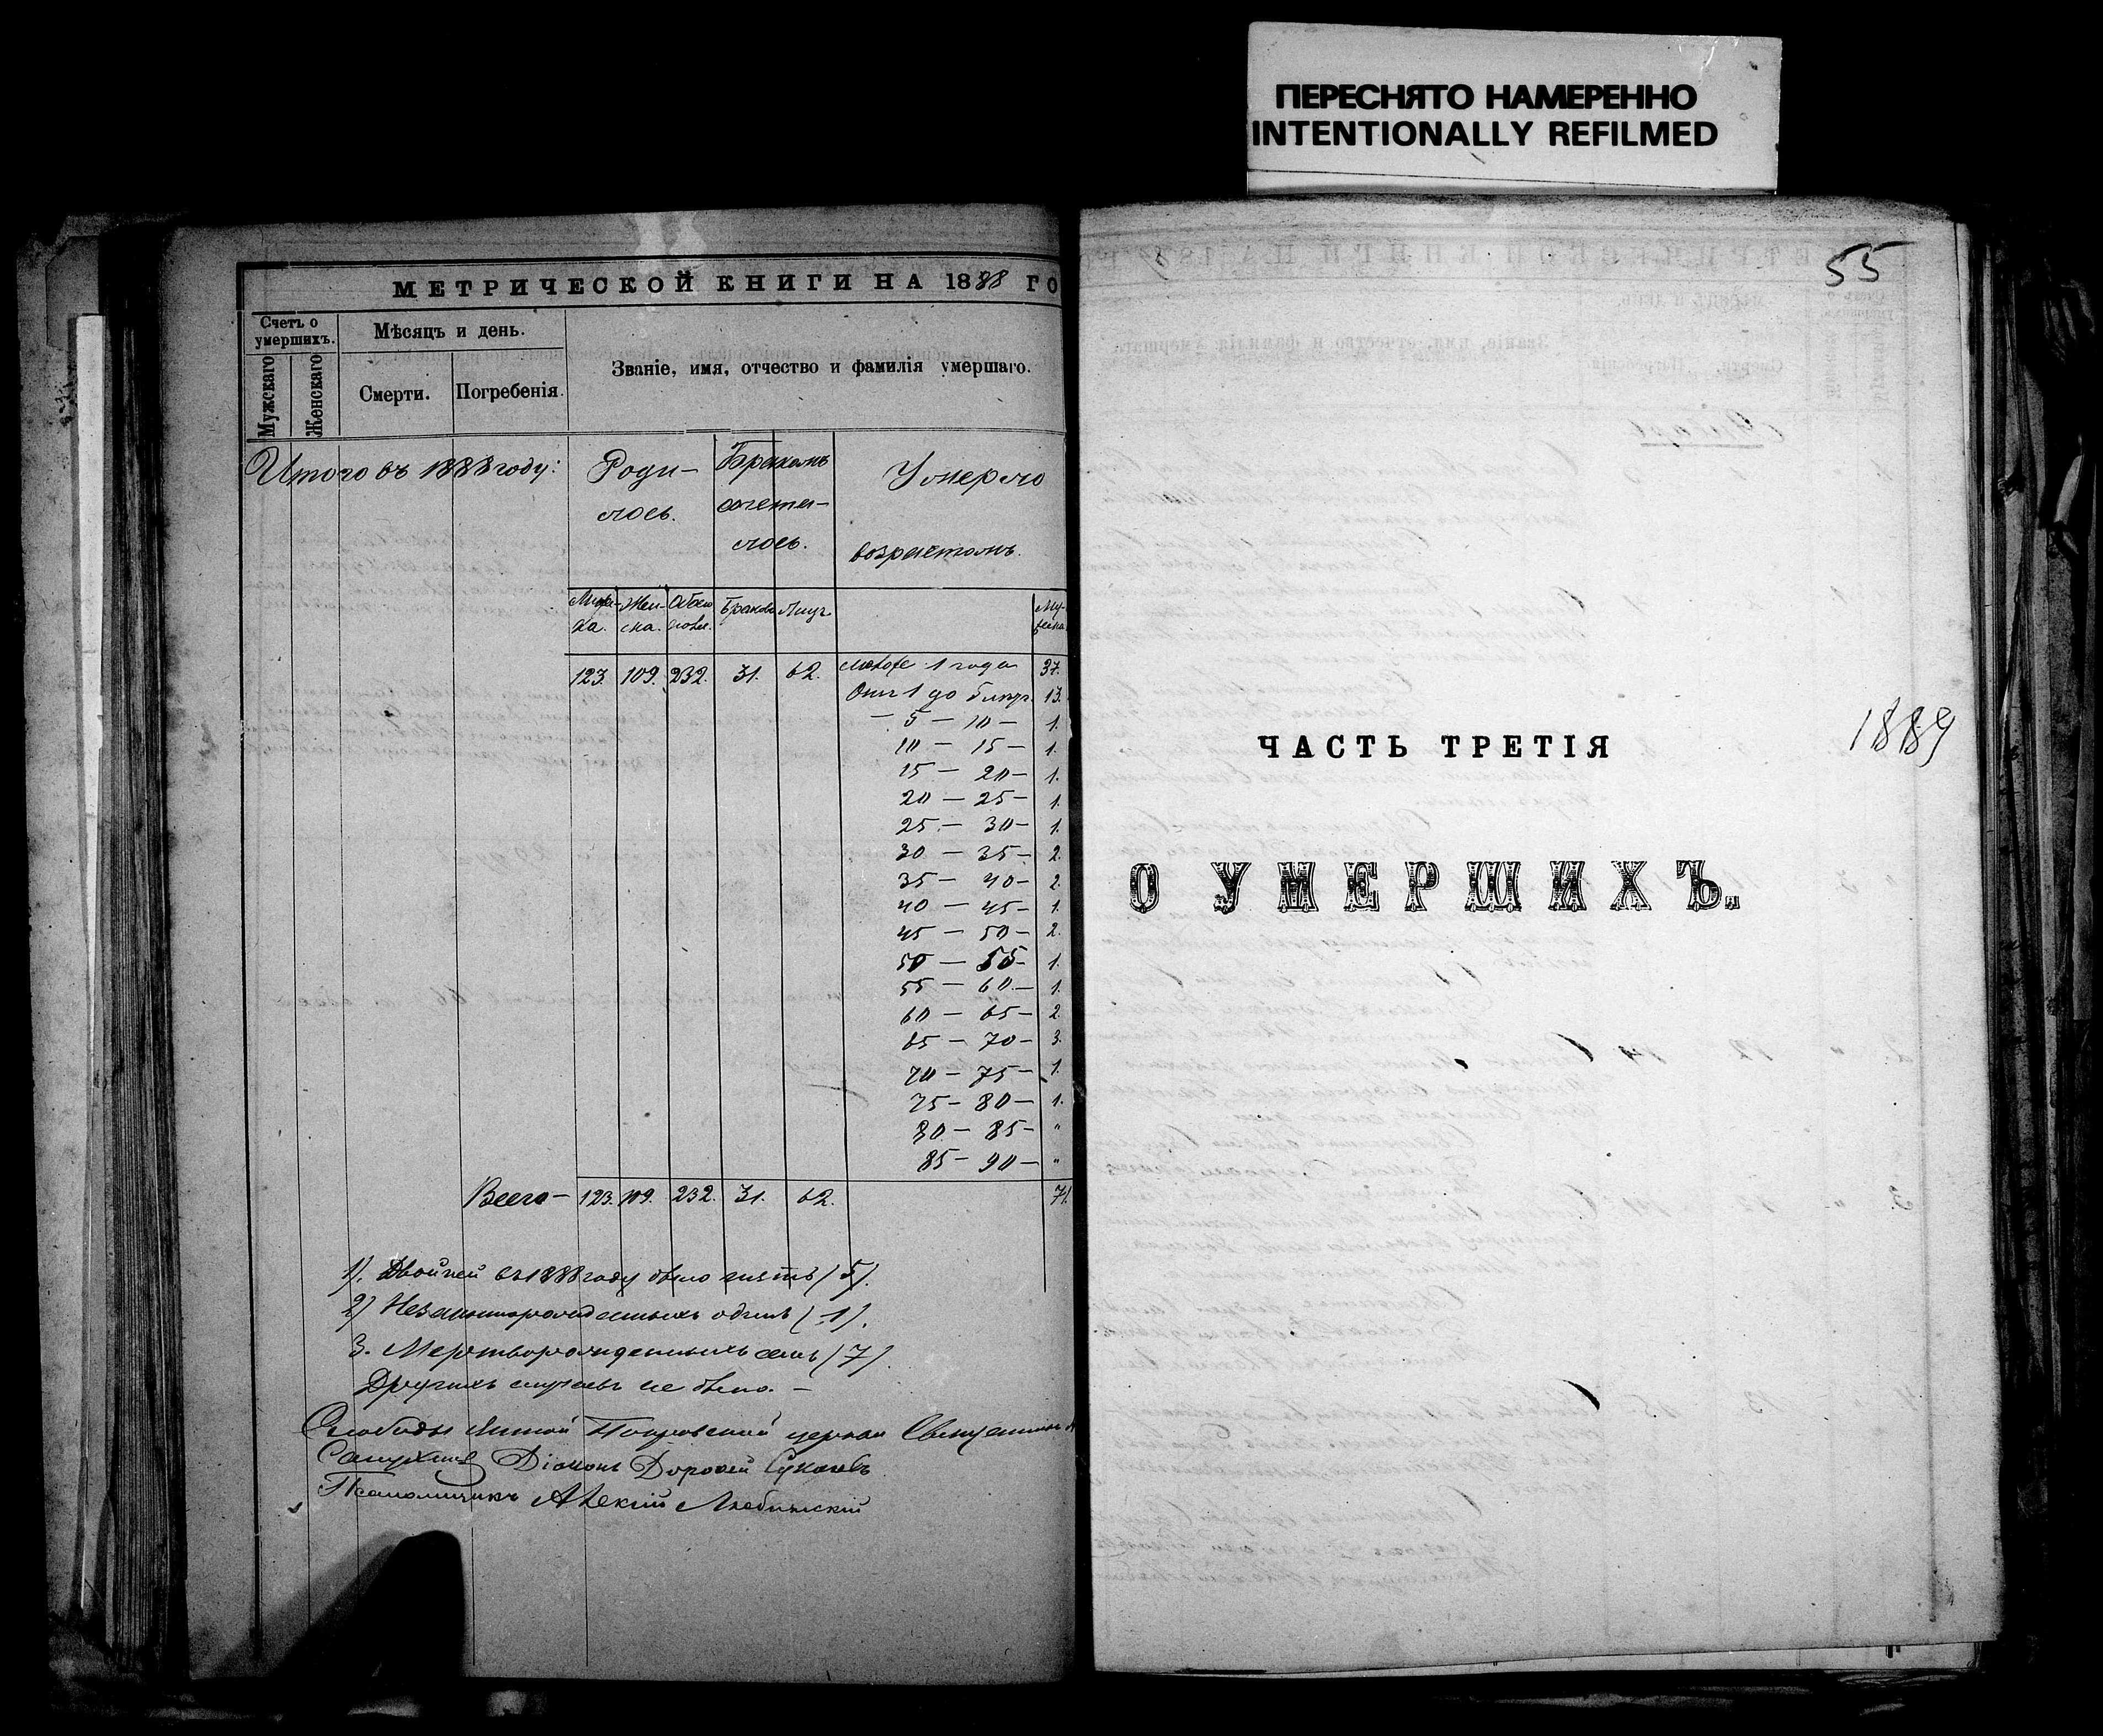 ПЕРЕСНЯТО НАМЕРЕННО
INTENTIONALLY REFILMED
МЕТРИЧЕСКОЙ КНИГИ НА 1888 ГО
Счетъ о умершихъ.
Мужскаго
Женскаго
Мѣсяцъ и день.
Смерти.
Погребенія.
Званіе, имя, отчество и фамилія умершаго.
Итого въ 1888 году:
Роди-
лось.
Бракомъ
сочета-
лось.
Умерло
возрастомъ.
Мужс-
ка.
Жен-
ска.
Обоего
Браковъ
Лицъ
123. 109. 232. 31. 62. 1 года 37.
Отъ 1 до 5 лѣтъ 13.
— 5 — 10 — 1.
10 — 15 — 1.
15 — 20 — 1.
20 — 25 — 1.
25 — 30 — 1.
30 — 35 — 2.
35 — 40 — 2.
40 — 45 — 1.
45 — 50 — 2.
50 — 55 — 1.
55 — 60 — 1.
60 — 65 — 2.
65 — 70 — 3.
70 — 75 — 1.
75 — 80 — 1.
80 — 85 — "
85 — 90 — "
Всего — 123. 109. 232. 31. 62. 71.
1). Двойней въ 1888 году было пять (5).
2) Незаконнорожденныхъ одинъ (1).
3. Мертворожденныхъ семь (7).
Другихъ случаевъ не было. —
Слободы Покровской церкви Священникъ
Діаконъ Дорофей
Псаломщикъ Алексій
55
ЧАСТЬ ТРЕТІЯ
1889
О УМЕРШИХЪ.